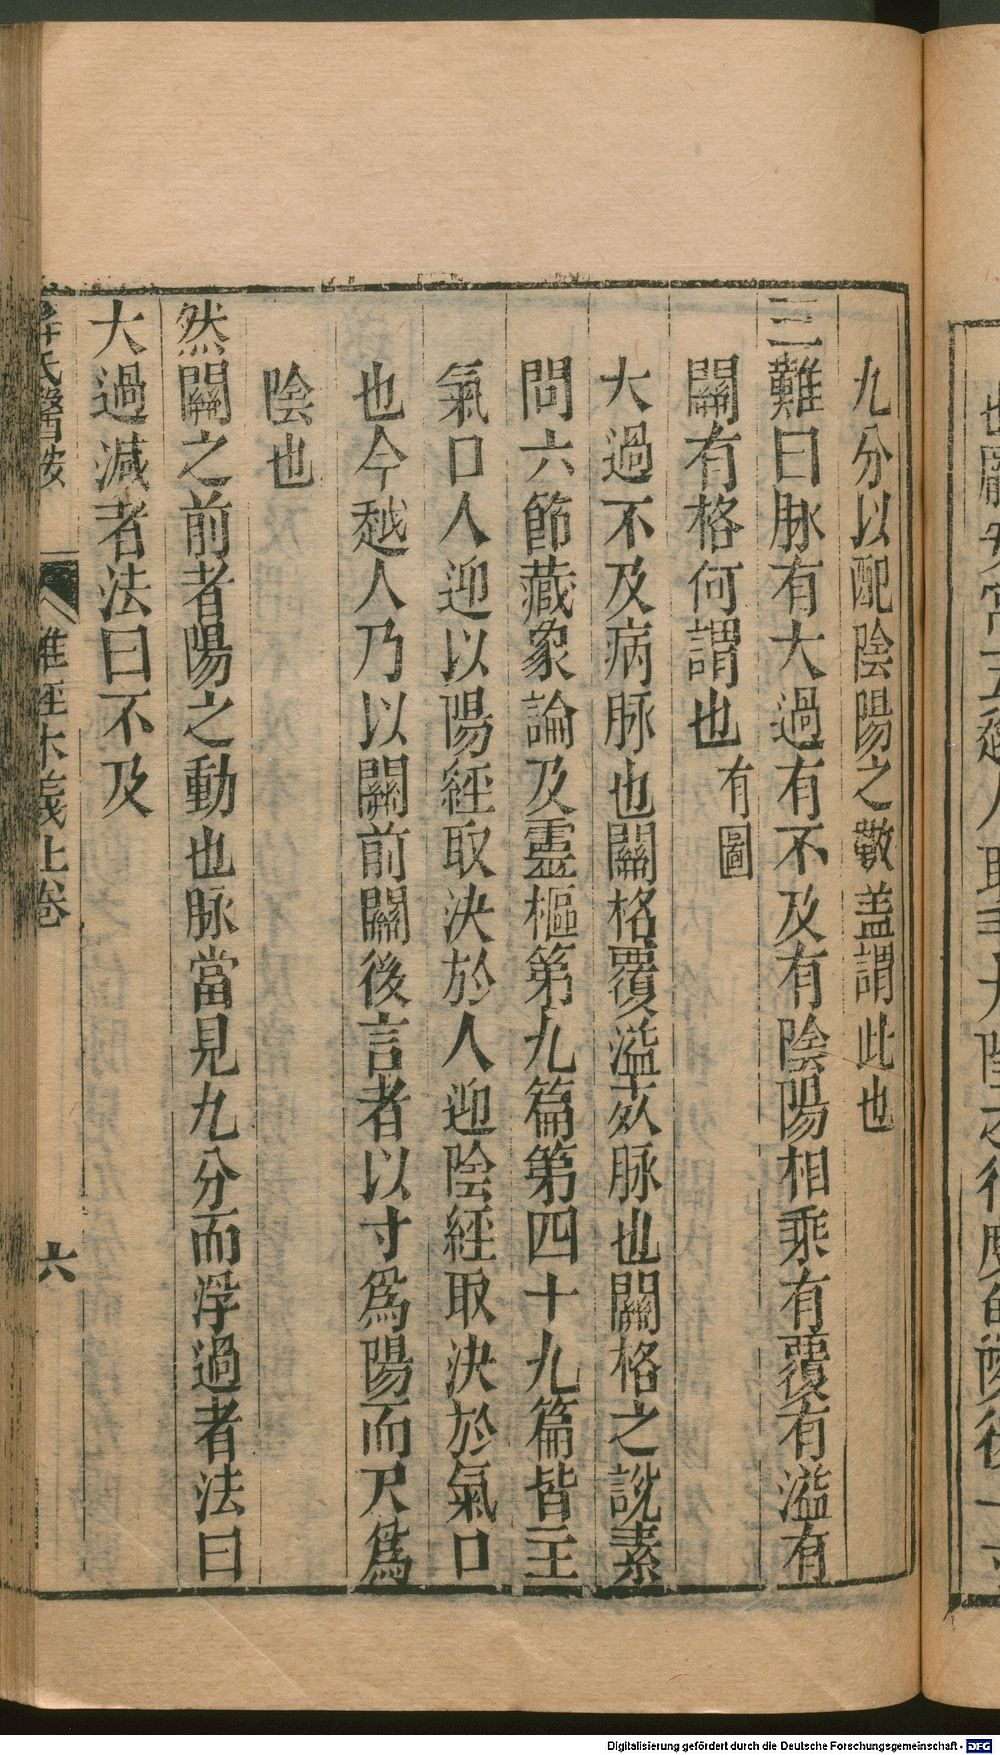 九分以配陰陽之數盖謂此也
三難曰脉有大過有不及有陰陽相乘有覆有溢有
關有格何謂也有圖
大過不及病脉也關格覆溢死脉也關格之說素
問六節藏象論及靈樞第九篇第四十九篇皆主
氣口人迎以陽經取決於人迎陰經取決於氣口
也今越人乃以關前關後言者以寸爲陽而尺爲
陰也
然關之前者陽之動也脉當見九分而浮過者法曰
大過減者法曰不及
氏醫按 難經本義上卷 六
Digitalisierung gefördert durch die Deutsche Forschungsgemeinschaft - DFG